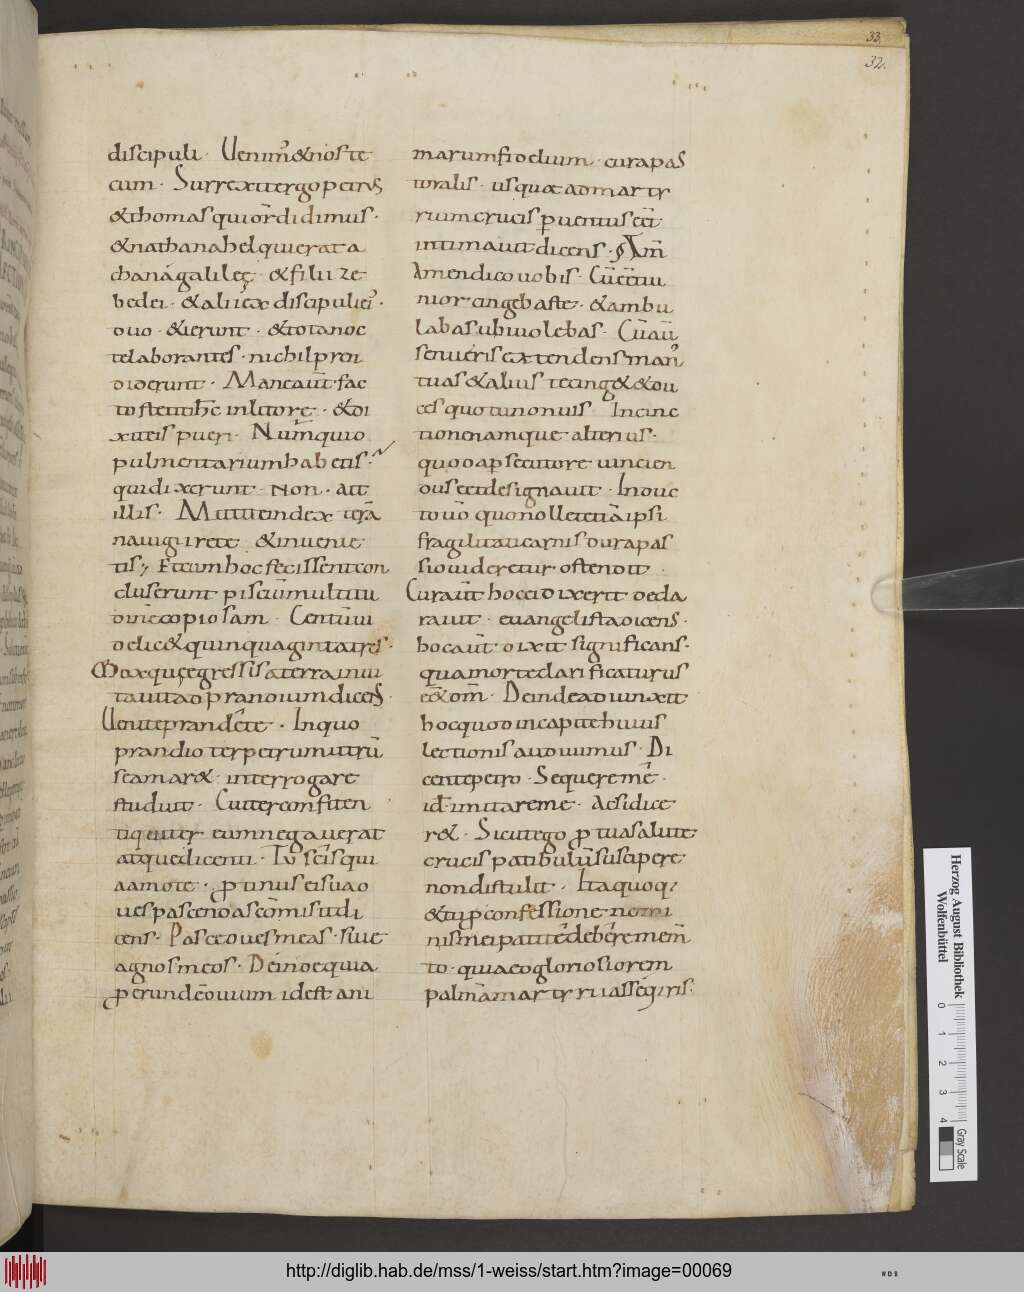 33.
32.
discipuli · Uenim᷒ & nos te
cum · Surrexit ergo petrus
& thomas qui or̄ didimus ·
& nathanahel qui erat a
chana galileę · & filii ze
bedei · & alii ex discipuli ei᷒ ·
duo · & ierunt · & tota noc
te laborantes · nichil pren
diderunt · Mane aūt fac
to stetit ihc̄ in litore · & di
xit eis pueri · Numquid
pulmentarium habetis ·
qui dixerunt · Non · Ait
illis · Mittite in dexterā
nauigii rete & inuenie
tis; Et cum hoc fecissent con
cluserunt pisciū multitu
dinē copiosam · Centūm
odecĩ & quinquaginta tres ·
Mox quę egressis a terra inui
tauit ad prandium dicens ·
Uenite prandēte · In quo
prandio ter petrum utrū
se amar& · interrogare
studuit · Cui ter confiten
ti qui ter eum negauerat
atque dicenti · Tu scis qui
a amo te · protinus ei sua o
ues pascendas cōmisit di
cens · Pasce oues meas · siue
agnos meos · Deinde quia
per undēouium id est ani
marum fidelium · cura pas
toralis · usque ad marty
rium crucis peruenturus eēt
intimauit dicens · Am̄
Amen dico uobis · Cū eēs iu
nior cingebas te · & ambu
labas ubi uolebas · Cū aū
senueris extendens man᷒
tuas & alius te cing& & du
c& quo tu non uis In cinc
tione namque alterius ·
quod a persecutore uincien
dus eēt designauit · In duc
tu ū quo nollet etiā ipsi
fragilitati carnis dura pas
sio uideretur ostendit ·
Cur aūt hoc ei dixerit decla
rauit · euangelista dicens ·
hoc aūt dixit significans ·
qua morte clarificaturus
eēt dm̄ · Deinde adiunxit
hoc quod in capite huius
lectionis audiuimus · Di
cente petro · Sequere mē ·
id ē imitare me · Ac si dice
r& · Sicut ego pro tua salute
crucis patibulū suscipere
non distuli · Ita quoq;
& tu pro confessione nomi
nis mei pati te debere mem̄
to · quia eo gloriosiorem
palmā martyrii assequeris ·
Herzog August Bibliothek
Wolfenbüttel
0 1 2 3 4
Gray Scale
http://diglib.hab.de/mss/1-weiss/start.htm?image=00069